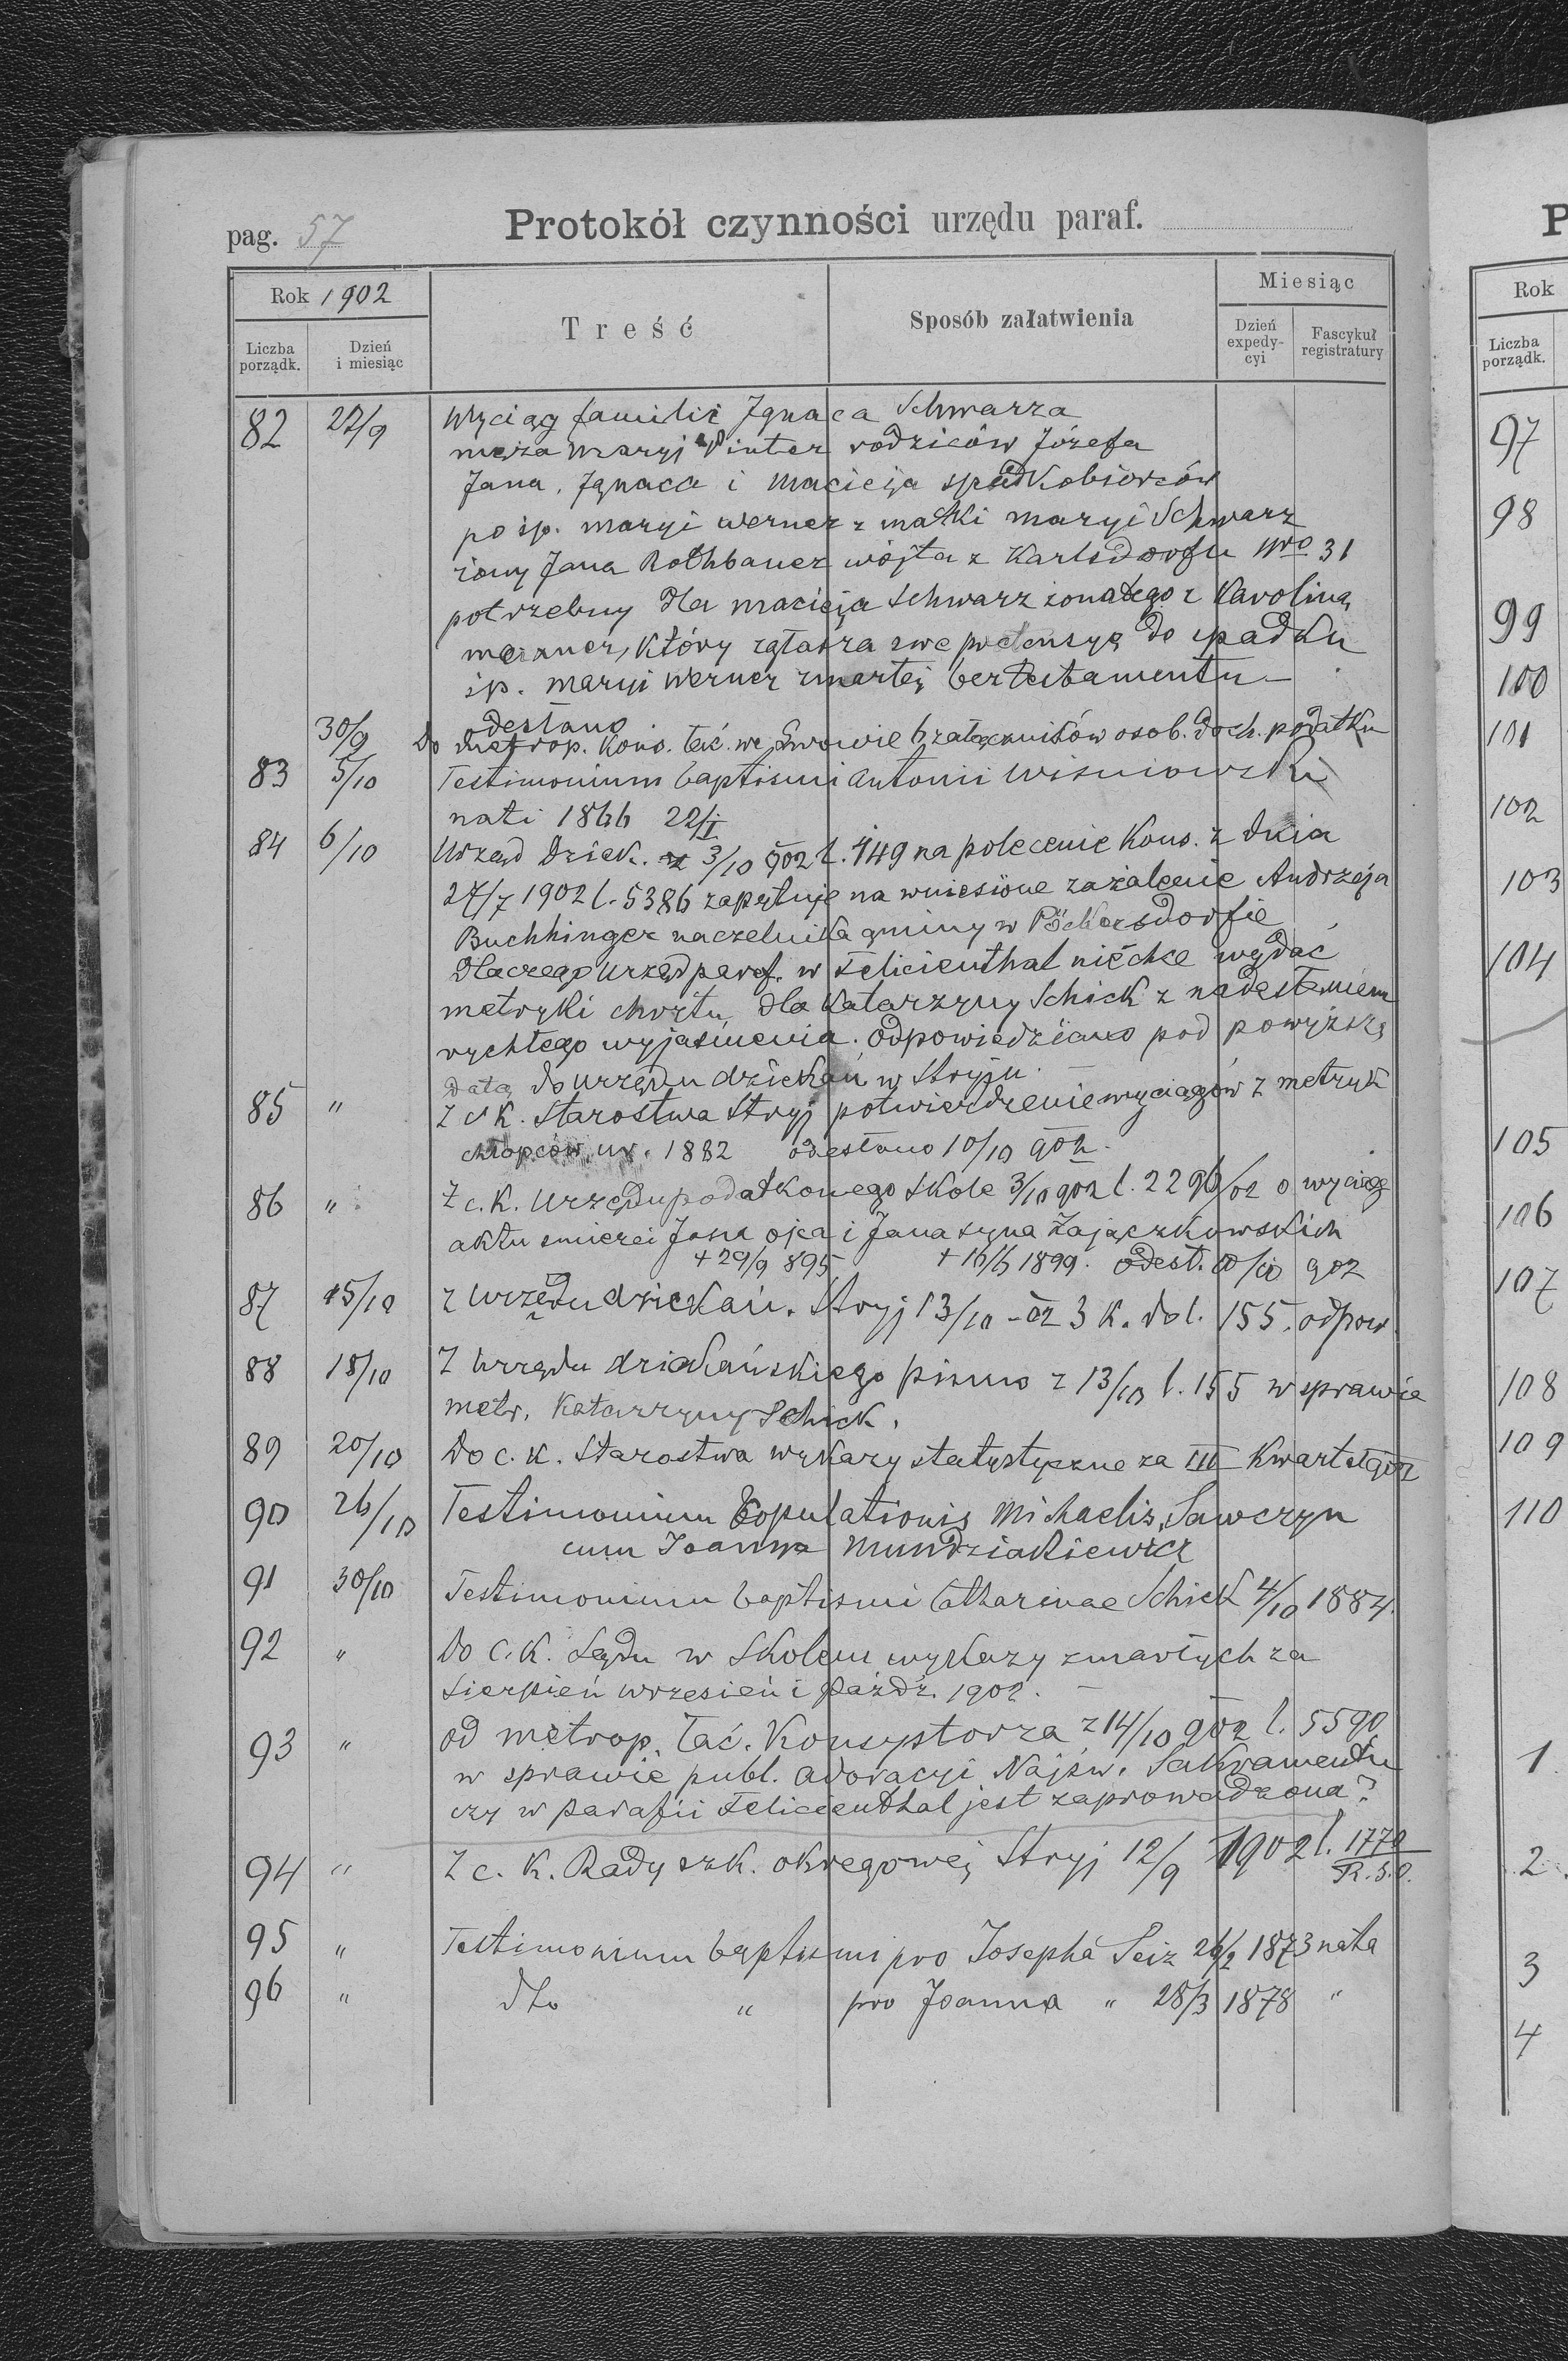 pag. 57 Protokół czynności urzędu paraf.
Rok 1902
Treść
Sposób załatwienia
Miesiąc
Liczba porządk.
Dzień i miesiąc
Dzień expedy-cyi
Fascykuł registratury
82 27/9 Wyciąg familii Ignaca Schwarza
męża Maryi Winter rodziców Józefa
Jana, Ignaca i Macieja spadkobierców
po śp. Maryi Werner z matki Maryi Schwarz
żony Jana Rothbauer wójta z Karlsdorfu Nro 31
potrzebny dla Macieja Schwarz żonatego z Karoliną
który zgłasza swe pretensye do spadku
śp. Maryi Werner zmarłej bez testamentu –
odesłano
30/9 Do metrop. Kons. łać. we Lwowie 6 załączników osob. doch. podatku
83 5/10 Testimonium baptismi Antonii Wisniowski
nati 1866 22/I
84 6/10 Urząd Dziek. 3/10 902 l. 149 na polecenie Kons. z dnia
27/7 1902 l. 5386 zapytuje na wniesione zażalenie Andrzeja
Buchhinger naczelnika gminy w Pöckersdorfie
dlaczego urząd paraf. w Felicienthal niechce wydać
metryki chrztu dla Katarzyny Schick z nadesłaniem
rychłego wyjaśnienia. Odpowiedziano pod powyższą
datą do urzędu dziekań. w Stryju.
85 " Z c K. Starostwa Stryj potwierdzenie wyciągów z metryk
chłopców ur. 1882 odesłano 10/10 902.
86 " Z c. K. Urzędu podatkowego Skole 3/10 902 l. 2296/02 o wyciąg
aktu śmierci Jana ojca i Jana syna Zajączkowskich
+ 29/9 895 + 16/6 1899. odest. 10/10 902
87 15/10 Z Urzędu dziekań. Stryj 13/10 – 02 3 K. do l. 155. odpow.
88 18/10 Z Urzędu dziekańskiego pismo z 13/10 l. 155 w sprawie
metr. Katarzyny Schick.
89 20/10 Do c. K. Starostwa wykazy statystyczne za III Kwartał 902
90 26/10 Testimonium Copulationis Michaelis Sawczyn
cum Joanna Mundziakiewicz
91 30/10 Testimonium baptismi Catharinae Schick 4/10 1884.
92 " Do C. K. Sądu w Skolem wykazy zmarłych za
Sierpień wrzesień i Paźdz. 1902. –
93 " Od metrop. łać. Konsystorza z 14/10 902 l. 5590
w sprawie publ. adoracyi Najśw. Sakramentu
czy w parafii Felicienthal jest zaprowadzona?
94 " Z c. K. Rady szk. okręgowej Stryj 12/9 1902 l. 1770
R. S. O.
95 " Testimonium baptismi pro Josepha Seiz 26/2 1873 nata
96 " dto " pro Joanna " 28/3 1878 "
P
Rok
Liczba porządk.
97
98
99
100
101
102
103
104
105
106
107
108
109
110
1
2
3
4